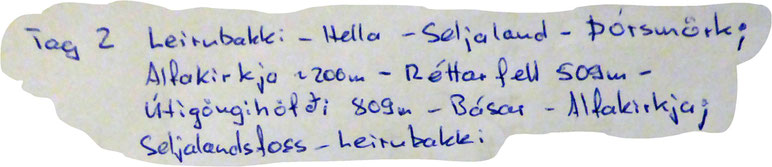 Tag 2 Leirubakki - Hella - Seljaland - Þórsmörk;
Alfakirkja ~200m - Réttarfell 509m -
Útigöngihöfði 809m - Básar - Alfakirkja;
Seljalandsfoss - Leirubakki